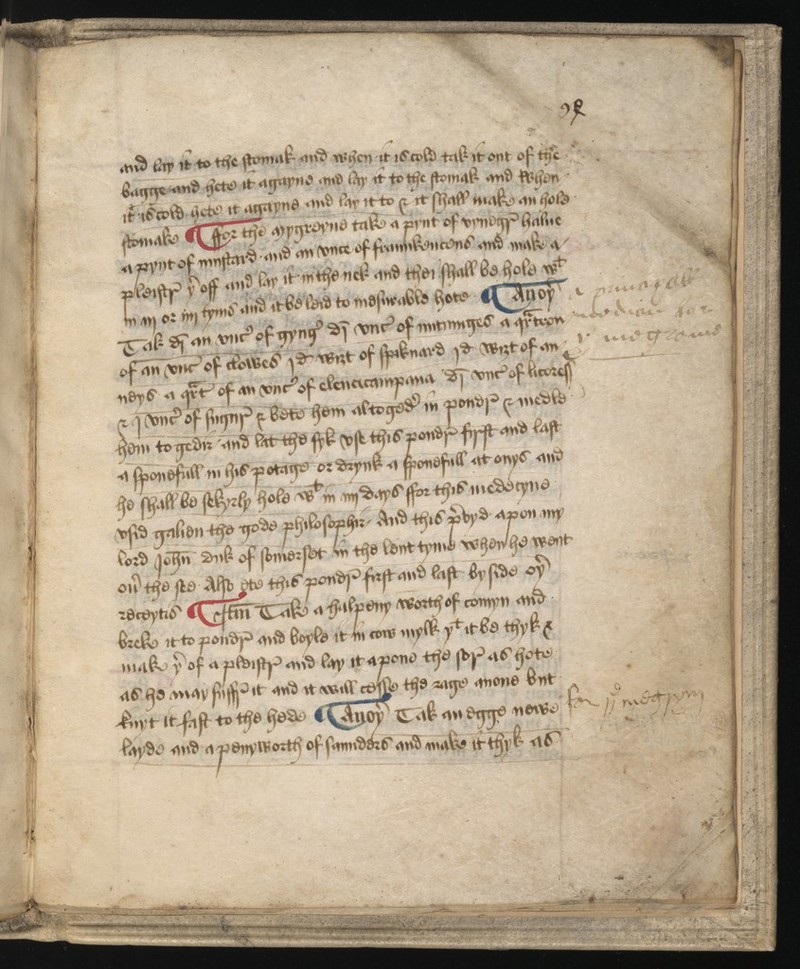 and lay it to the stomak and when it is cold tak it out of the
bagge and hete it agayne and lay it to the stomak and when
it is cold hete it agayne and lay it to & it shall make an hole
stomake ¶ ffor the mygreyne take a pynt of vynegr halue
a pynt of mustard and an vnce of frankencens and make a
pleistr yͬ off and lay it in the nek and thei shall be hole wᵗ
in iij or iiij tyms and it be leid to mesurable hote ¶ Anoyͬ
Tak dı̄ an vncᵉ of gyngᵉ dı̄ vncᵉ of notmuges a qrtron
of an vncᵉ of clowes jd wirt of spiknard jd wirt of an
neys a qrt of an vncᵉ of elenacampana dı̄ vncᵉ of licoress
& j vncᵉ of sugur & bete hem altogedᵉ in poudr & medle
hem to gedir and lat the syk vse this poudr fyrst and last
a sponefull in his potage or drynk a sponefull at onys and
he shall be sekyrly hole wᵗ in iiij days ffor this medecyne
vsid galien the gode philosophir And this p̱vyd apon my
lord John duk of somerset in the lent tyme when he went
ouͬ the see Also ete this poudr first and last by side oyͬ
receytis ¶ Itm̄ Take a halpeny worth of comyn and
breke it to poudr and boyle it in cow mylk yᵗ it be thyk &
make yͬ of a pleistr and lay it apone the sor as hote
as he may suffr it and it will cesse the rage anone but
knyt it fast to the hede ¶ Anoyͬ Tak an egge newe
layde and a penyworth of saunders and make it thyk as
for yᵉ megrym